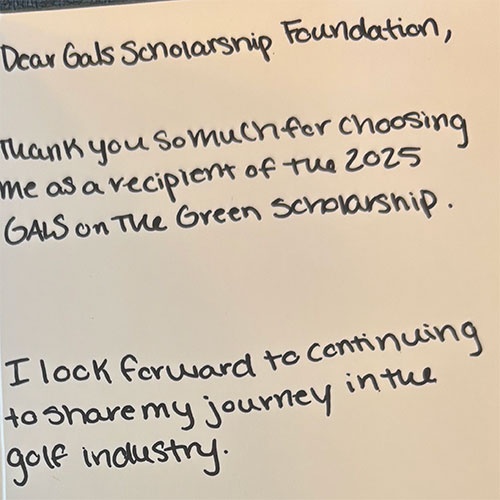 Dear Gals Scholarship Foundation,
Thank you so much for choosing
me as a recipient of the 2025
GALS on The Green Scholarship.
I look forward to continuing
to share my journey in the
golf industry.